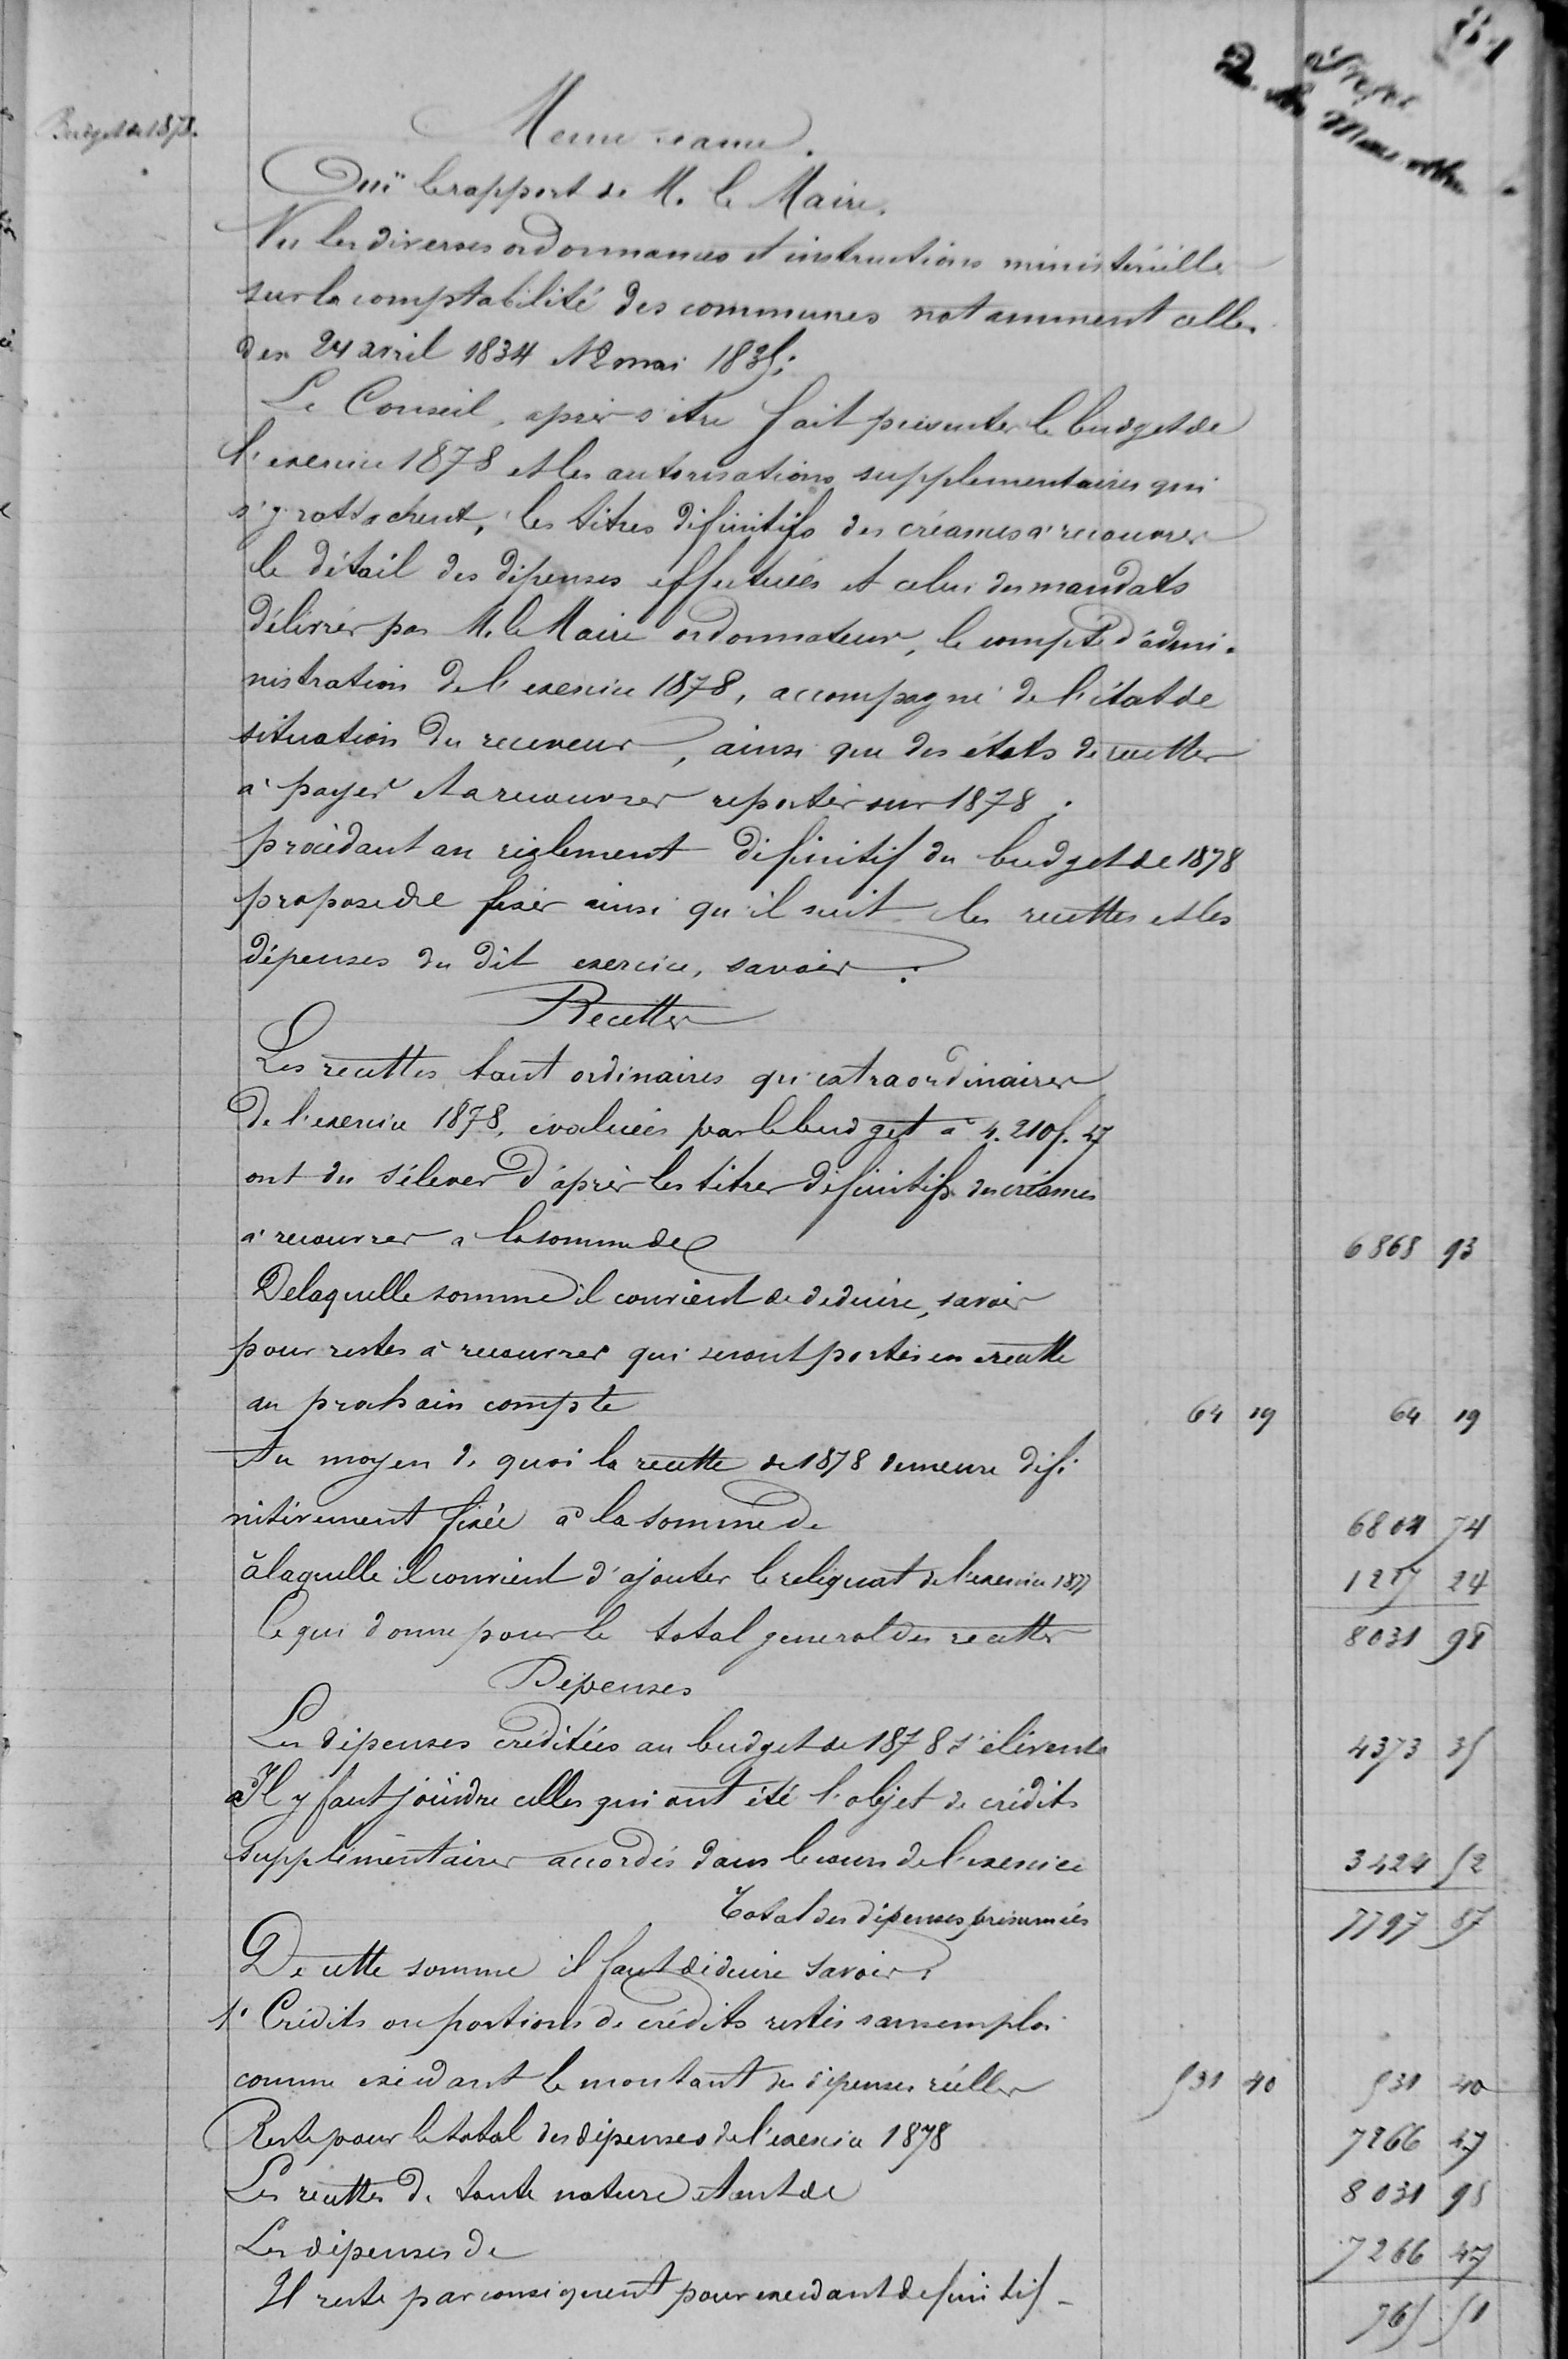 81
Budget de 1878.
Meme seance.
Ouï le rapport de M. le Maire.
Vu les diverses ordonnances et instructions ministérielles
sur la comptabilité des communes notamment celles
des 24 avril 1834 et 2 mai 1835;
Le Conseil, après s'être fait présenter le budget de
l'exercice 1878 et les autorisations supplementaires qui
s'y rattachent, les titres définitifs des créances à recouvrer
le détail des dépenses effectuées et celui des mandats
délivrés par M. le Maire ordonnateur, le compte d'admi-
nistration de l'exercice 1878, accompagné de l'état de
situation du receveur, ainsi que des états de restes
à payer et a recouvrer reportés sur 1878.
procédant au règlement définitif du budget de 1878
propose de fixer ainsi qu'il suit les recettes et les
dépenses du dit exercice, savoir :
Recettes
Les recettes tant ordinaires qu'extraordinaires
de l'exercice 1878, évaluées par le budget à 4.210f.47
ont du s'élever d'après les titres définitifs des créances
à recouvrer a la somme de 6868 93
De laquelle somme il convient de deduire, savoir
pour restes à recouvrer qui seront portés en recette
au prochain compte 64 19 64 19
Au moyen de quoi la recette de 1878 demeure défi
nitivement fixée à la somme de 6804 74
à laquelle il convient d'ajouter le reliquat de l'exercice 1877 1227 24
Ce qui donne pour le total general des recettes 8031 98
Dépenses
Les dépenses créditées au budget de 1878 s'élèvent 4373 35
à Il y faut joindre celles qui ont été l'objet de crédits
supplémentaires accordés dans le cours de l'exercice 3424 52
Total des dépenses présumées 7797 87
De cette somme il faut déduire savoir :
1° Crédits ou portions de crédits restés sans emploi
comme excédant le montant des dépenses réelles 531 40 531 40
Reste pour le total des dépenses de l'exercice 1878 7266 47
Les recettes de toute nature etant de 8031 98
Les dépenses de 7266 47
Il reste par consequent pour excedant definitif - 765 51